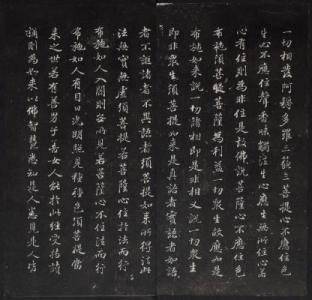 一切相發阿耨多羅三藐三菩提心不應住色
生心不應住聲香味觸法生心應生無所住心若
心有住則為非住是故佛說菩薩心不應住色
布施須菩提菩薩為利益一切眾生故應如是
布施如來說一切諸相即是非相又說一切眾生
即非眾生須菩提如來是真語者實語者如語
者不誑語者不異語者須菩提如來所得法此
法無實無虛須菩提若菩薩心住於法而行
布施如人入闇則無所見若菩薩心不住法而行
布施如人有目日光明照見種種色須菩提當
來之世若有善男子善女人能於此經受持讀
誦則為如來以佛智慧悉知是人悉見是人皆